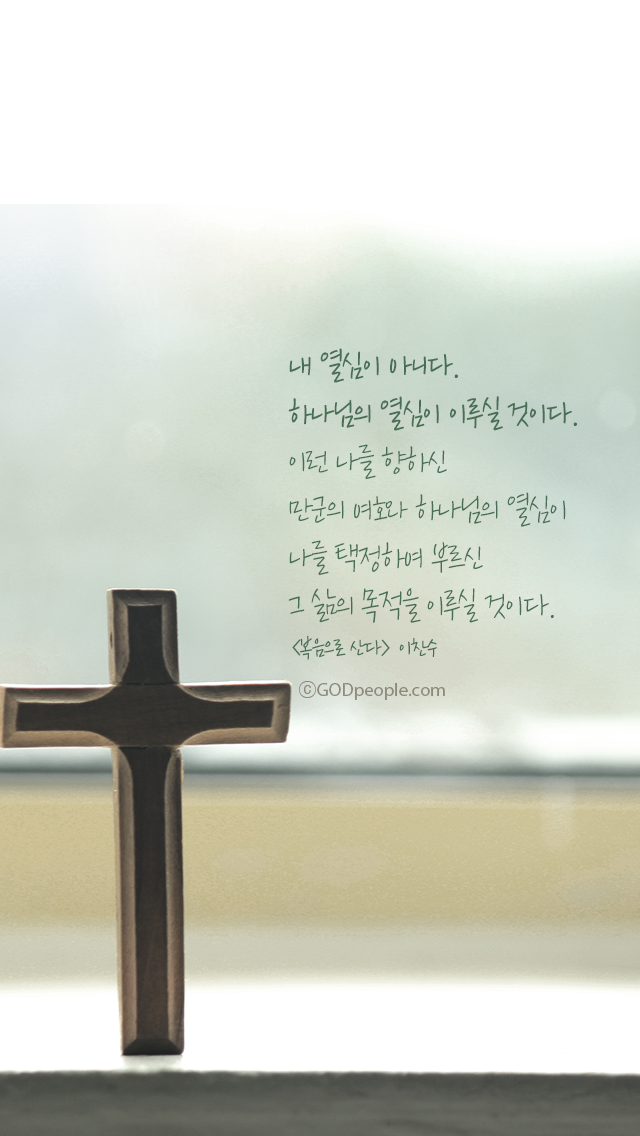 내 열심이 아니다.
하나님의 열심이 이루실 것이다.
이런 나를 향하신
만군의 여호와 하나님의 열심이
나를 택정하여 부르신
그 삶의 목적을 이루실 것이다.
<복음으로 산다> 이찬수
ⓒGODpeople.com